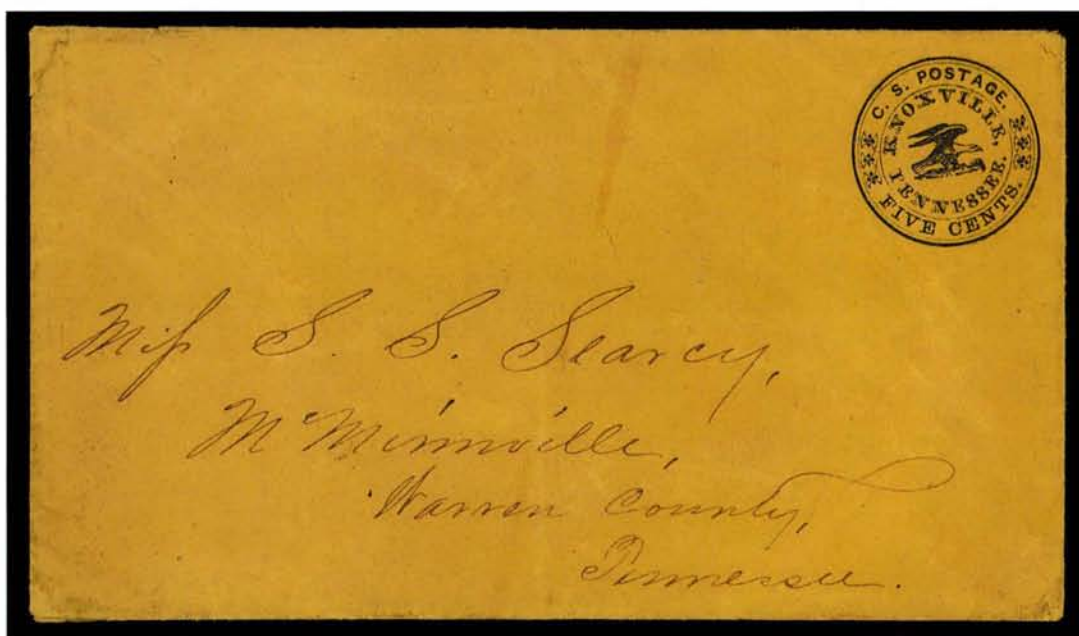 C. S. POSTAGE.
KNOXVILLE,
TENNESSEE.
FIVE CENTS.
Miſs S. S. Searcy,
McMinnville,
Warren County,
Tennessee.